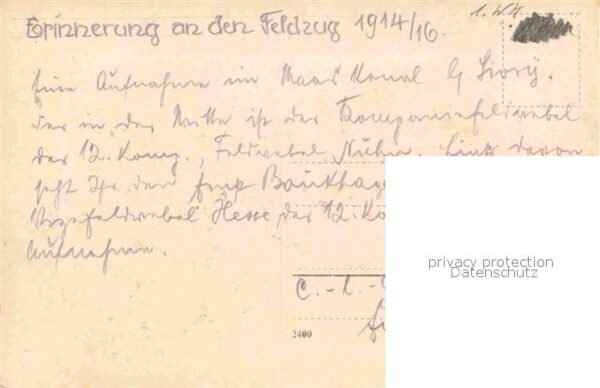 1. WK
Erinnerung an den Feldzug 1914/16.
Eine Aufnahme im Maas Kanal b/
der in der Mitte ist der Kompaniefeldwebel
der 12. Komp., Feldwebel Kuhn. Links davon
seht Ihr den
Vizefeldwebel Hesse der 12. Ko
Aufnahme.
privacy protection
Datenschutz
2400